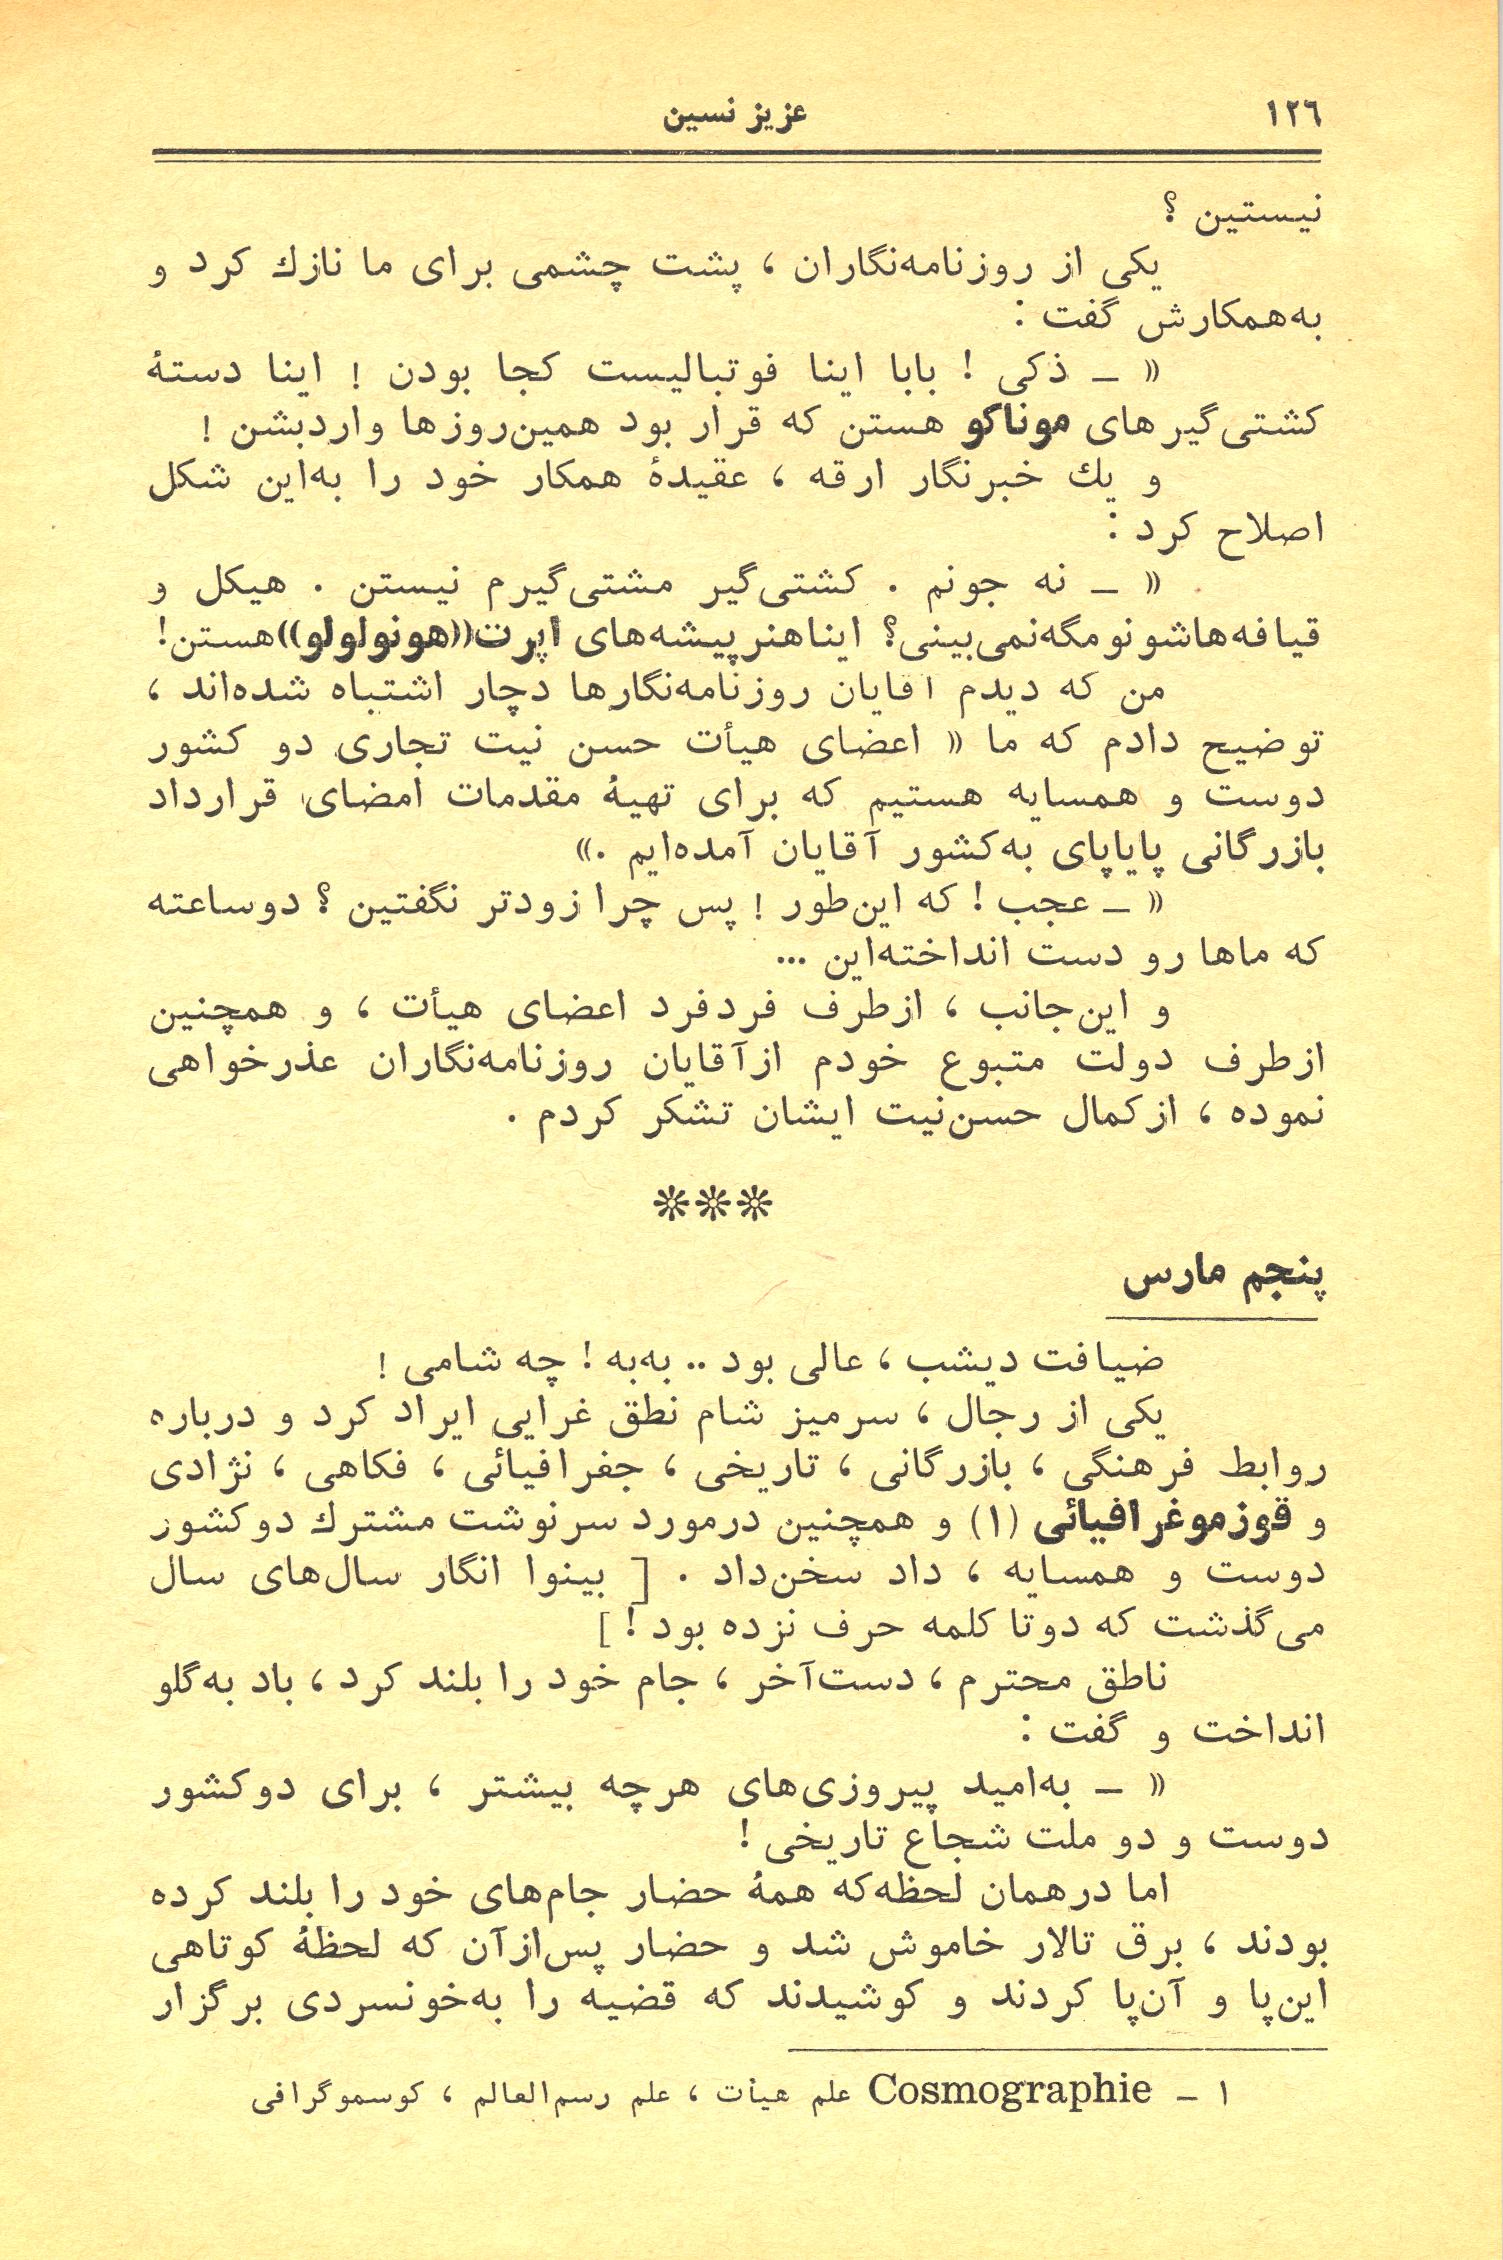 ۱۲٦
عزیز نسین
نیستین ؟
یکی از روزنامه‌نگاران ، پشت چشمی برای ما نازك کرد و
به‌همکارش گفت :
« ــ ذکی ! بابا اینا فوتبالیست کجا بودن ! اینا دستهٔ
کشتی‌گیرهای موناکو هستن که قرار بود همین‌روزها واردبشن !
و یك خبرنگار ارقه ، عقیدهٔ همکار خود را به‌این شکل
اصلاح کرد :
« ــ نه جونم . کشتی‌گیر مشتی‌گیرم نیستن . هیکل و
قیافه‌هاشونو مگه‌نمی‌بینی؟ اینا هنرپیشه‌های اپرت((هونولولو))هستن!
من که دیدم آقایان روزنامه‌نگارها دچار اشتباه شده‌اند ،
توضیح دادم که ما « اعضای هیأت حسن نیت تجاری دو کشور
دوست و همسایه هستیم که برای تهیهٔ مقدمات امضای قرارداد
بازرگانی پایاپای به‌کشور آقایان آمده‌ایم .»
« ــ عجب ! که این‌طور ! پس چرا زودتر نگفتین ؟ دوساعته
که ماها رو دست انداخته‌این ...
و این‌جانب ، ازطرف فردفرد اعضای هیأت ، و همچنین
ازطرف دولت متبوع خودم ازآقایان روزنامه‌نگاران عذرخواهی
نموده ، ازکمال حسن‌نیت ایشان تشکر کردم .
***
پنجم مارس
ضیافت دیشب ، عالی بود .. به‌به ! چه شامی !
یکی از رجال ، سرمیز شام نطق غرایی ایراد کرد و درباره
روابط فرهنگی ، بازرگانی ، تاریخی ، جغرافیائی ، فکاهی ، نژادی
و قوزموغرافیائی (۱) و همچنین درمورد سرنوشت مشترك دوکشور
دوست و همسایه ، داد سخن‌داد . [ بینوا انگار سال‌های سال
می‌گذشت که دوتا کلمه حرف نزده بود ! ]
ناطق محترم ، دست‌آخر ، جام خود را بلند کرد ، باد به‌گلو
انداخت و گفت :
« ــ به‌امید پیروزی‌های هرچه بیشتر ، برای دوکشور
دوست و دو ملت شجاع تاریخی !
اما درهمان لحظه‌که همهٔ حضار جام‌های خود را بلند کرده
بودند ، برق تالار خاموش شد و حضار پس‌ازآن که لحظهٔ کوتاهی
این‌پا و آن‌پا کردند و کوشیدند که قضیه را به‌خونسردی برگزار
۱ ــ Cosmographie علم هیأت ، علم رسم‌العالم ، کوسموگرافی